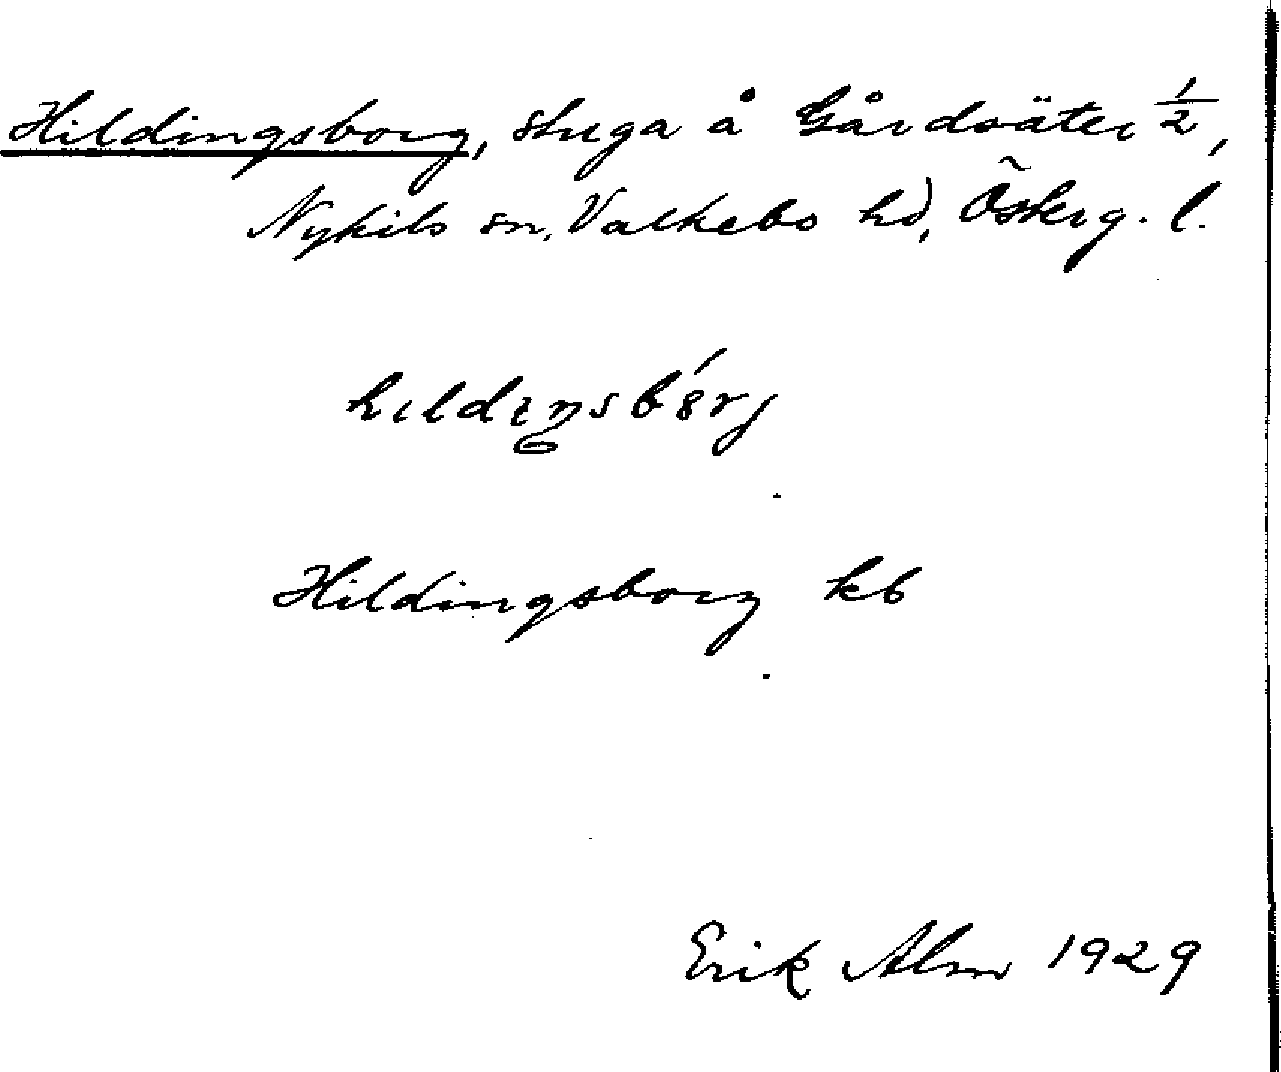 Hildingsborg, stuga å Gårdsäter 1/2,
Nykils sn, Valkebo hd, Österg. l.
Hildingsborg kb
Erik Alm 1929